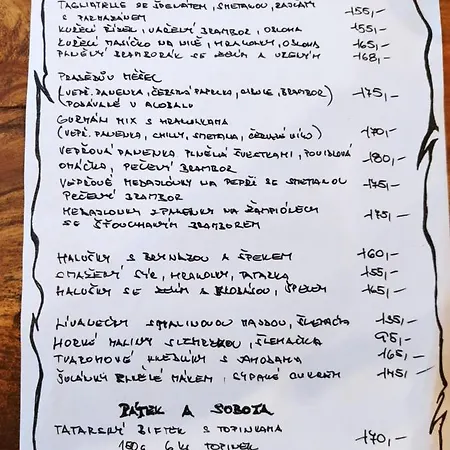 TAGLIATELLE SE ŠPENÁTEM, SMETANOU, RAJČATY
S PARMAZÁNEM 155,-
KUŘECÍ ŘÍZEK, VAŘENÝ BRAMBOR, OBLOHA 155,-
KUŘECÍ MASÍČKO NA NIVĚ, HRANOLKY, OBLOHA 165,-
PLNĚNÝ BRAMBORÁK SE ZELÍM A UZENÝM 168,-
PRASEDŮV MĚŠEC
(VEPŘ. PANENKA, ČERSTVÁ PAPRIKA, CIBULE, BRAMBOR) 175,-
PODÁVANÉ V ALOBALU
GURMÁN MIX S HRANOLKAMA
(VEPŘ. PANENKA, CHILLY, SMETANA, ČERVENÉ VÍNO) 170,-
VEPŘOVÁ PANENKA PLNĚLÁ ŠVESTKAMI, POVIDLOVÁ
OMÁČKA, PEČENÝ BRAMBOR 180,-
VEPŘOVÉ MEDAILONKY NA PEPŘI SE SMETANOU 175,-
PEČENÝ BRAMBOR
MEDAILONKY Z PANENKY NA ŽAMPIÓNECH 175,-
SE ŠŤOUCHANÝM BRAMBOREM
HALUŠKY S BRYNDZOU A ŠPEKEM 160,-
SMAŽENÝ SÝR, HRANOLKY, TATARKA 155,-
HALUŠKY SE ZELÍM A KLOBÁSOU, ŠPEKEM 165,-
LÍVANEČKY S MALINOVOU HADDOU, ŠLEHAČKA 135,-
HORKÉ MALINY S ZMRZKOU, ŠLEHAČKA 95,-
TVAROHOVÉ KNEDLÍKY S JAHODAMA 165,-
ŠULÁNKY PLNĚLÉ MÁKEM, SYPANÉ CUKREM 145,-
PÁTEK A SOBOTA
TATARSKÝ BIFTEK S TOPINKAMA 170,-
180g 6 ks TOPINEK